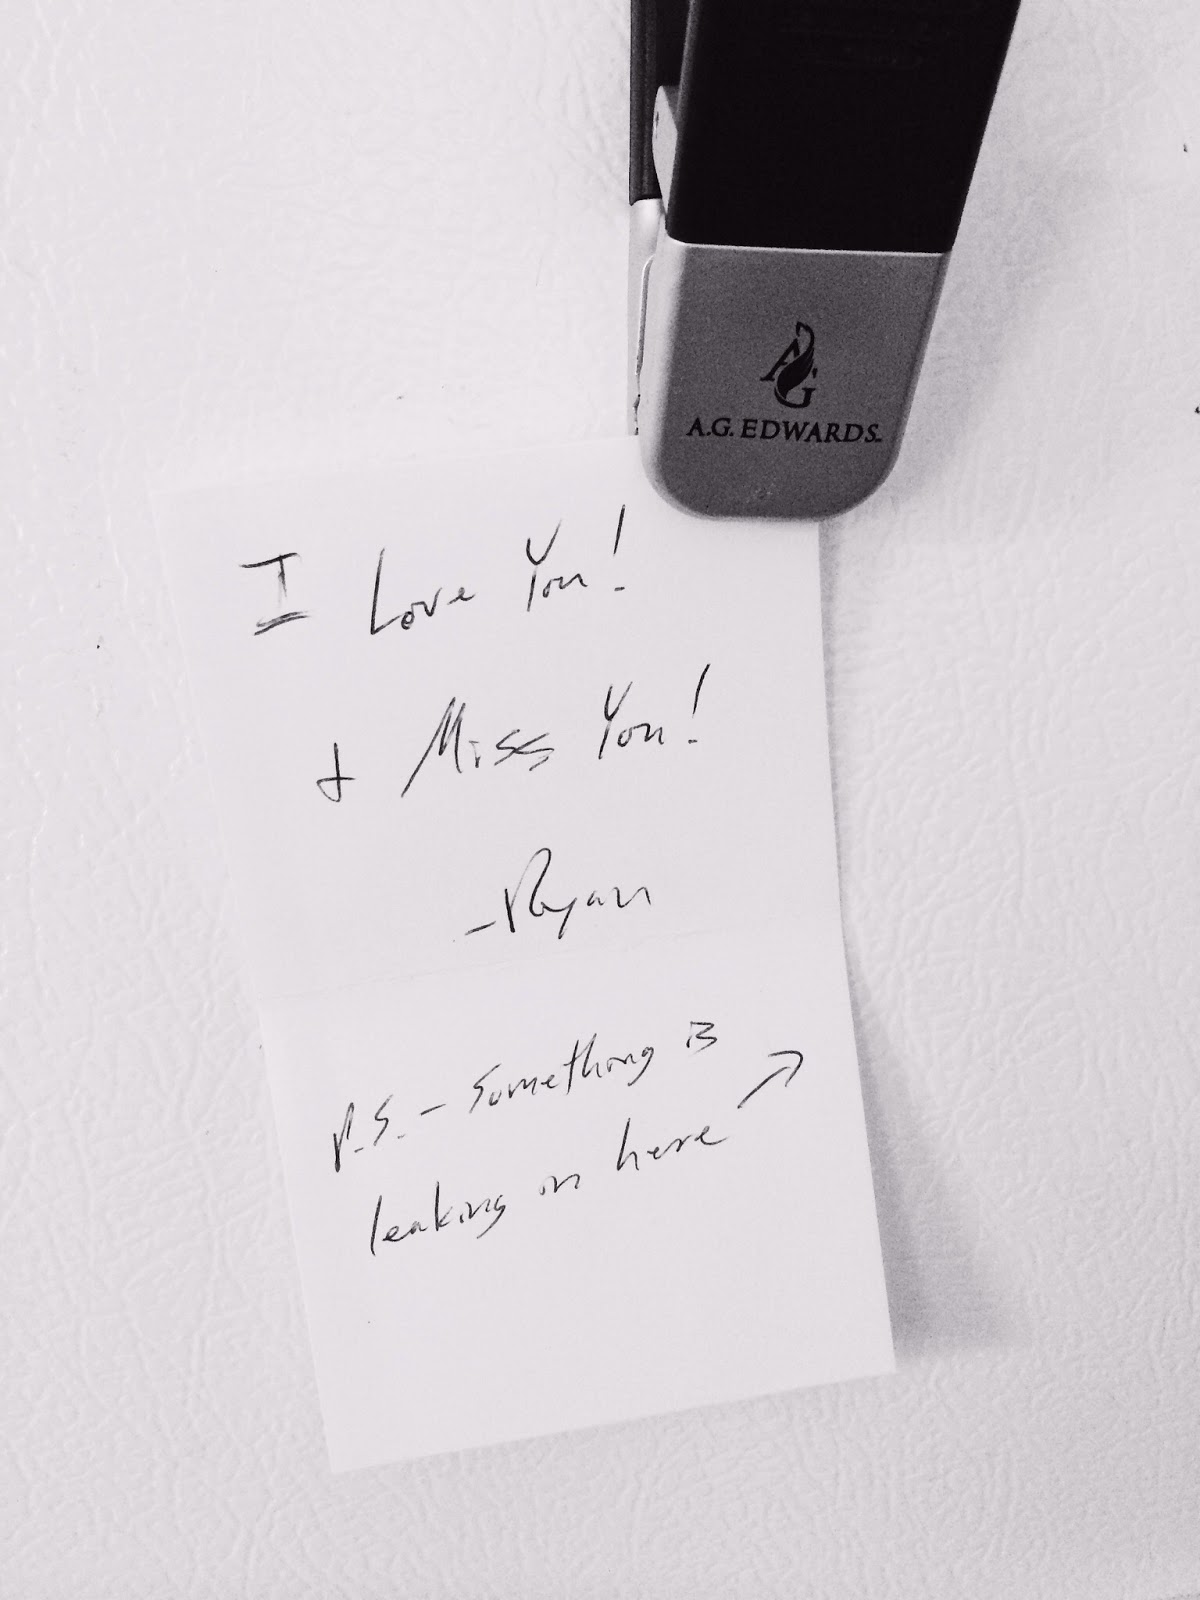 AG
A.G. EDWARDS.
I Love You!
& Miss You!
-Ryan
P.S. - Something is
leaking in here ↗